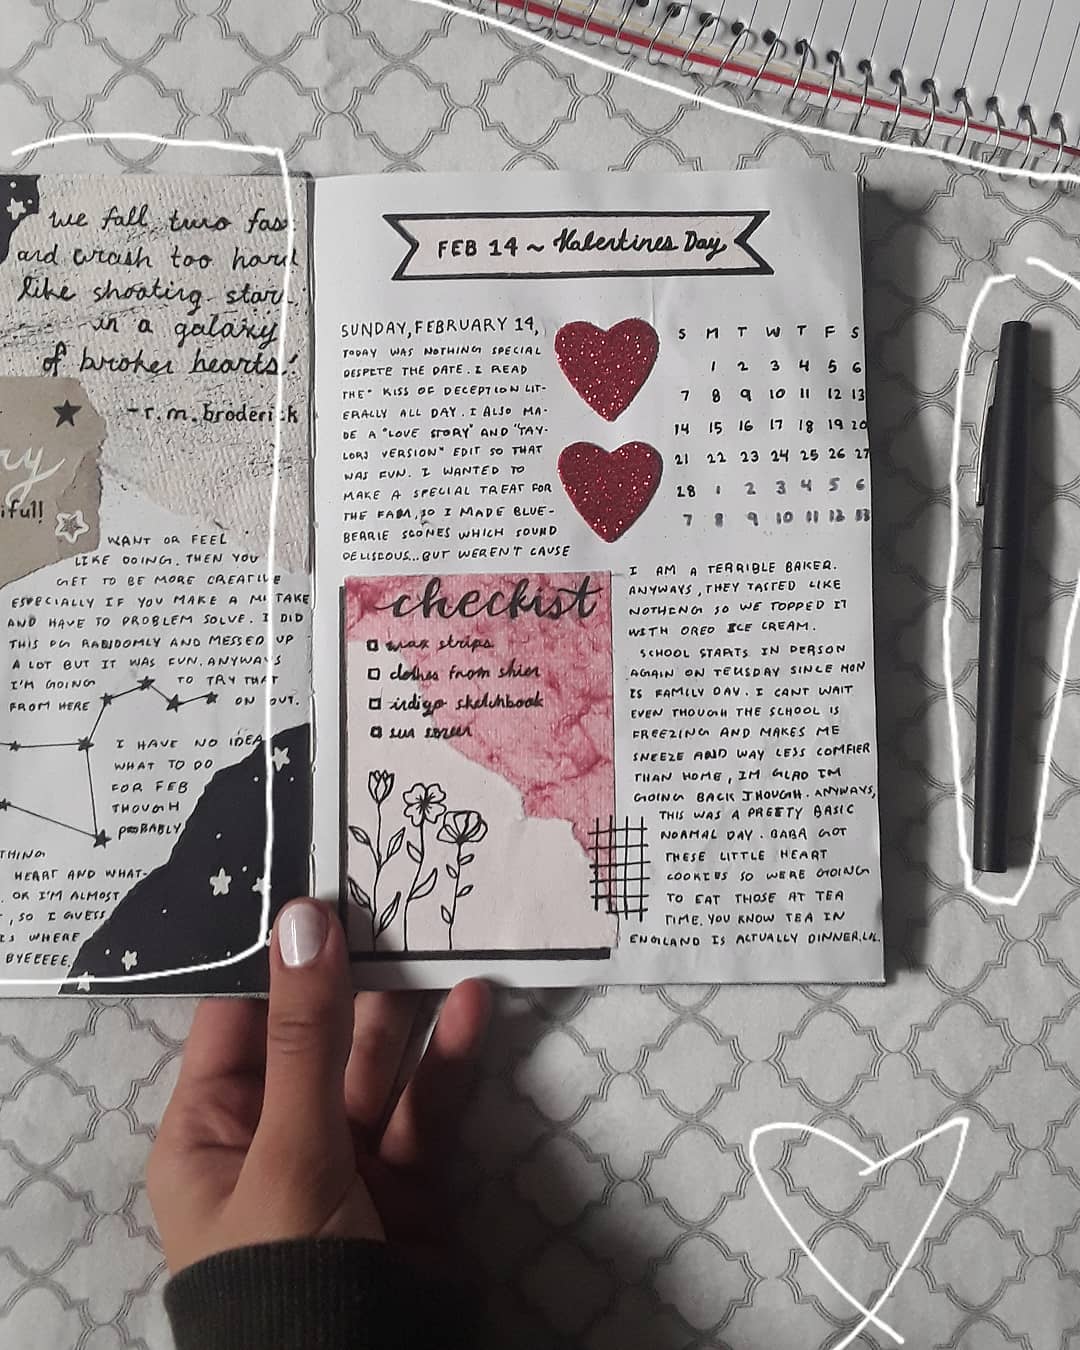 we fall two fas
and crash too hard
like shooting stars
in a galaxy
of broken hearts.'
-r.m.broderick
ry
iful!
WANT OR FEEL
LIKE DOING. THEN YOU
GET TO BE MORE CREATIVE
ESPECIALLY IF YOU MAKE A MI TAKE
AND HAVE TO PROBLEM SOLVE. I DID
THIS PG RANDOMLY AND MESSED UP
A LOT BUT IT WAS FUN. ANYWAYS
I'M GOING TO TRY THAT
FROM HERE ON OUT.
I HAVE NO IDEA
WHAT TO DO
FOR FEB
THOUGH
PROBABLY
THING
HEART AND WHAT-
OK I'M ALMOST
, SO I GUESS
IS WHERE
BYEEEEE.
FEB 14 ~ Valentines Day
SUNDAY, FEBRUARY 14,
TODAY WAS NOTHING SPECIAL
DESPITE THE DATE. I READ
THE" KISS OF DECEPTION LIT-
ERALLY ALL DAY. I ALSO MA-
DE A "LOVE STORY" AND "TAY-
LORS VERSION" EDIT SO THAT
WAS FUN. I WANTED TO
MAKE A SPECIAL TREAT FOR
THE FAM, SO I MADE BLUE-
BERRIE SCONES WHICH SOUND
DELISCOUS... BUT WEREN'T CAUSE
S M T W T F S
1 2 3 4 5 6
7 8 9 10 11 12 13
14 15 16 17 18 19 20
21 22 23 24 25 26 27
28 1 2 3 4 5 6
7 8 9 10 11 12 13
checklist
wax strips
clothes from shien
indigo sketchbook
sun screen
I AM A TERRIBLE BAKER.
ANYWAYS, THEY TASTED LIKE
NOTHENG SO WE TOPPED IT
WITH OREO ICE CREAM.
SCHOOL STARTS IN PERSON
AGAIN ON TEUSDAY SINCE MON
IS FAMILY DAY. I CANT WAIT
EVEN THOUGH THE SCHOOL IS
FREEZING AND MAKES ME
SNEEZE AND WAY LESS COMFIER
THAN HOME, IM GLAD IM
GOING BACK THOUGH. ANYWAYS,
THIS WAS A PREETY BASIC
NORMAL DAY. BABA GOT
THESE LITTLE HEART
COOKIES SO WERE GOING
TO EAT THOSE AT TEA
TIME. YOU KNOW TEA IN
ENGLAND IS ACTUALLY DINNER, LOL.